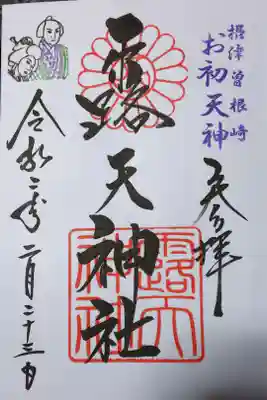 摂津曽根崎
お初天神
奉拝
露天神社
露天
神社
令和二年二月二十三日